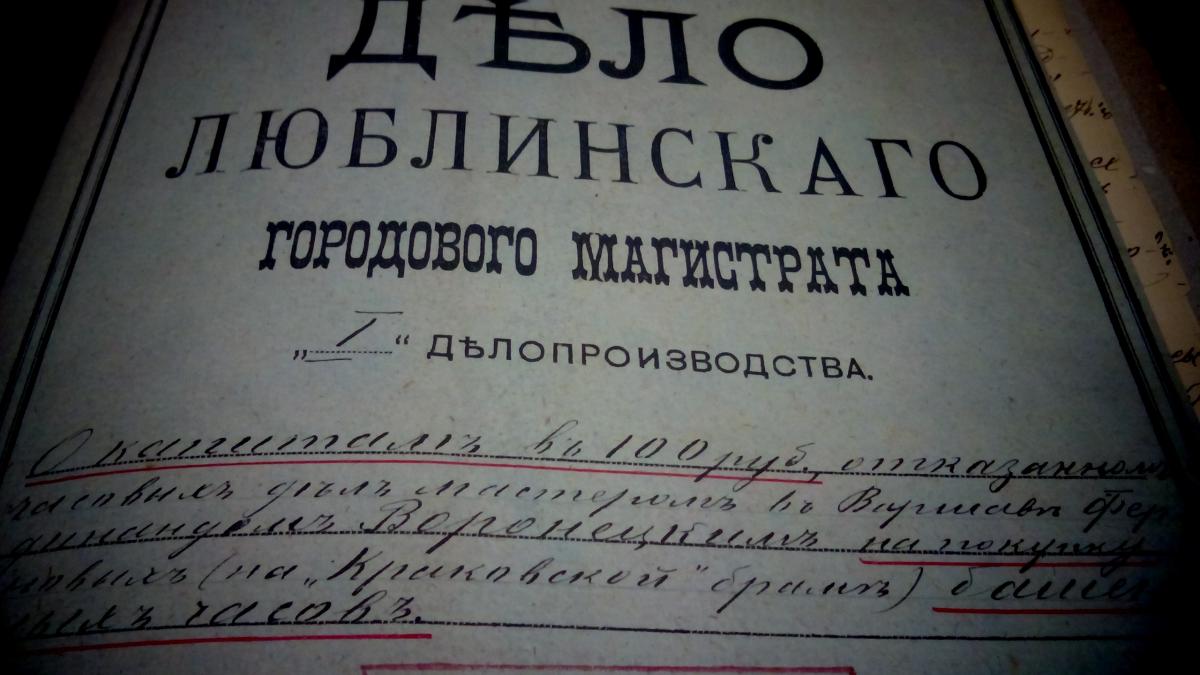 ДѢЛО
ЛЮБЛИНСКАГО
ГОРОДОВОГО МАГИСТРАТА
„ I “ ДѢЛОПРОИЗВОДСТВА.
О капиталѣ въ 100 руб., отказанномъ
часовыхъ дѣлъ мастеромъ въ Варшавѣ Фер-
динандомъ Воронецкимъ на покупку
новыхъ (на „Краковской“ брамѣ) башен-
ныхъ часовъ.